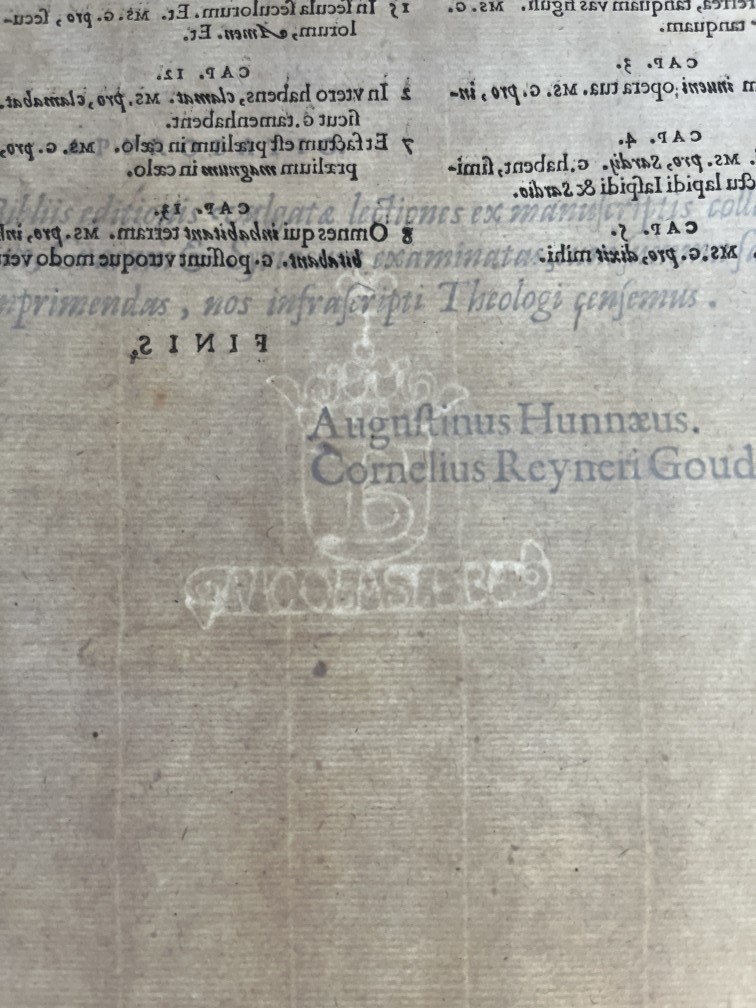 15 In secula seculorum. Et. MS. G. pro, secu-
lorum, Amen. Et.
CAP. 12.
2 In vtero habens, clamat. MS. pro, clamabat.
sicut G. tamen habent.
7 Et factum est prælium in cælo. MS. G. pro,
prælium magnum in cælo.
CAP. 13.
8 Omnes qui inhabitant terram. MS. pro, inha
bitabant. G. possunt vtroque modo ver
FINIS.
terrea, tanquam vas figuli. MS. G.
tanquam.
CAP. 3.
inueni opera tua. MS. G. pro, in-
CAP. 4.
MS. pro, Sardij. G. habent, simi-
lapidi Iaspidi & Sardio.
CAP. 5.
MS. G. pro, dixit mihi.
Bibliis editionis lectiones ex manuscriptis
examinatas
imprimendas, nos infrascripti Theologi censemus.
Augustinus Hunnæus.
Cornelius Reyneri Goud
B
NICOLAS LEBE